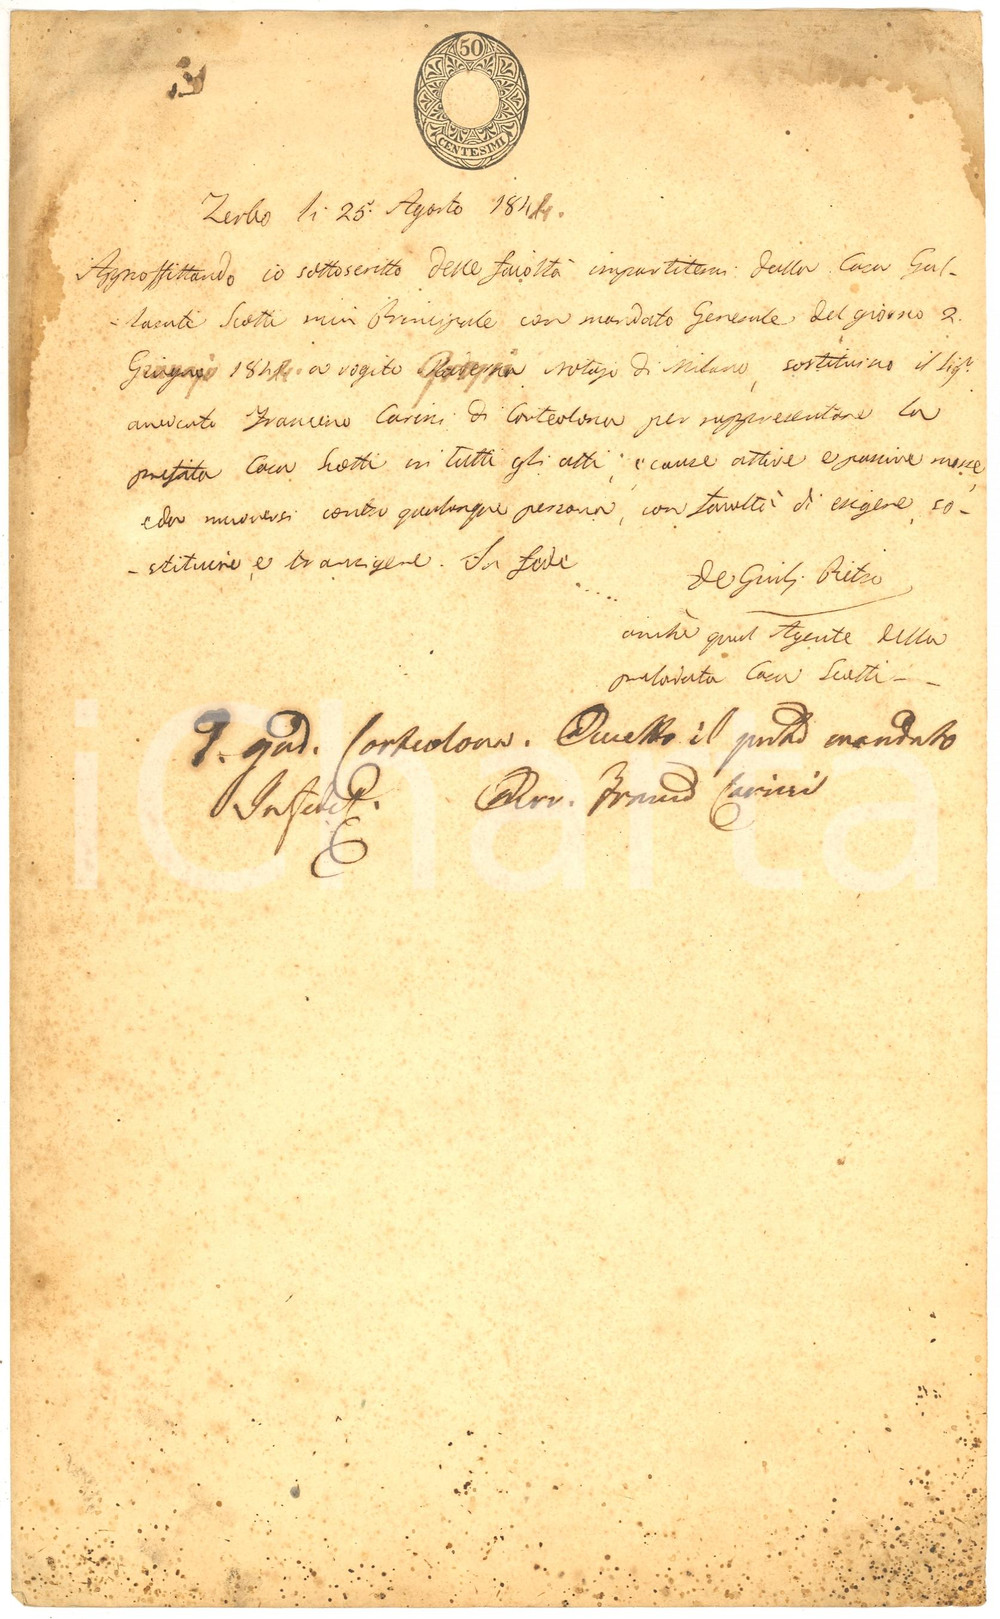 50
CENTESIMI
Zerbo li 25. Agosto 184
Approffittando io sottoscritto delle facoltà impartitemi dalla Casa Gal-
-larati Scotti mia Principale con mandato Generale del giorno 2.
Giugno 184 a rogito notajo di Milano, sostituisco il Sigr.
avvocato Francesco Carini di Corteolona per rappresentare la
prefata Casa Scotti in tutti gli atti, e cause attive e passive mosse,
e da muoversi contro qualunque persona, con facoltà di esigere, so-
-stituire e transigere. In fede
De Giulj Pietro
anche qual Agente della
prelodata Casa Scotti - -
Corteolona. Accetto il mandato
In fede Avv. Carini
iCharta